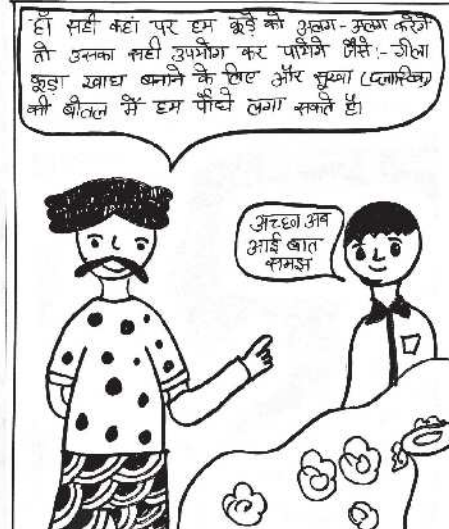 हाँ सही कहा पर हम कूड़े को अलग-अलग करेंगे
तो उसका सही उपयोग कर पायेंगे जैसे:- गीला
कूड़ा खाद्य बनाने के लिए और सूखा (प्लास्टिक)
की बोतल में हम पौधे लगा सकते है।
अच्छा अब
आई बात
समझ